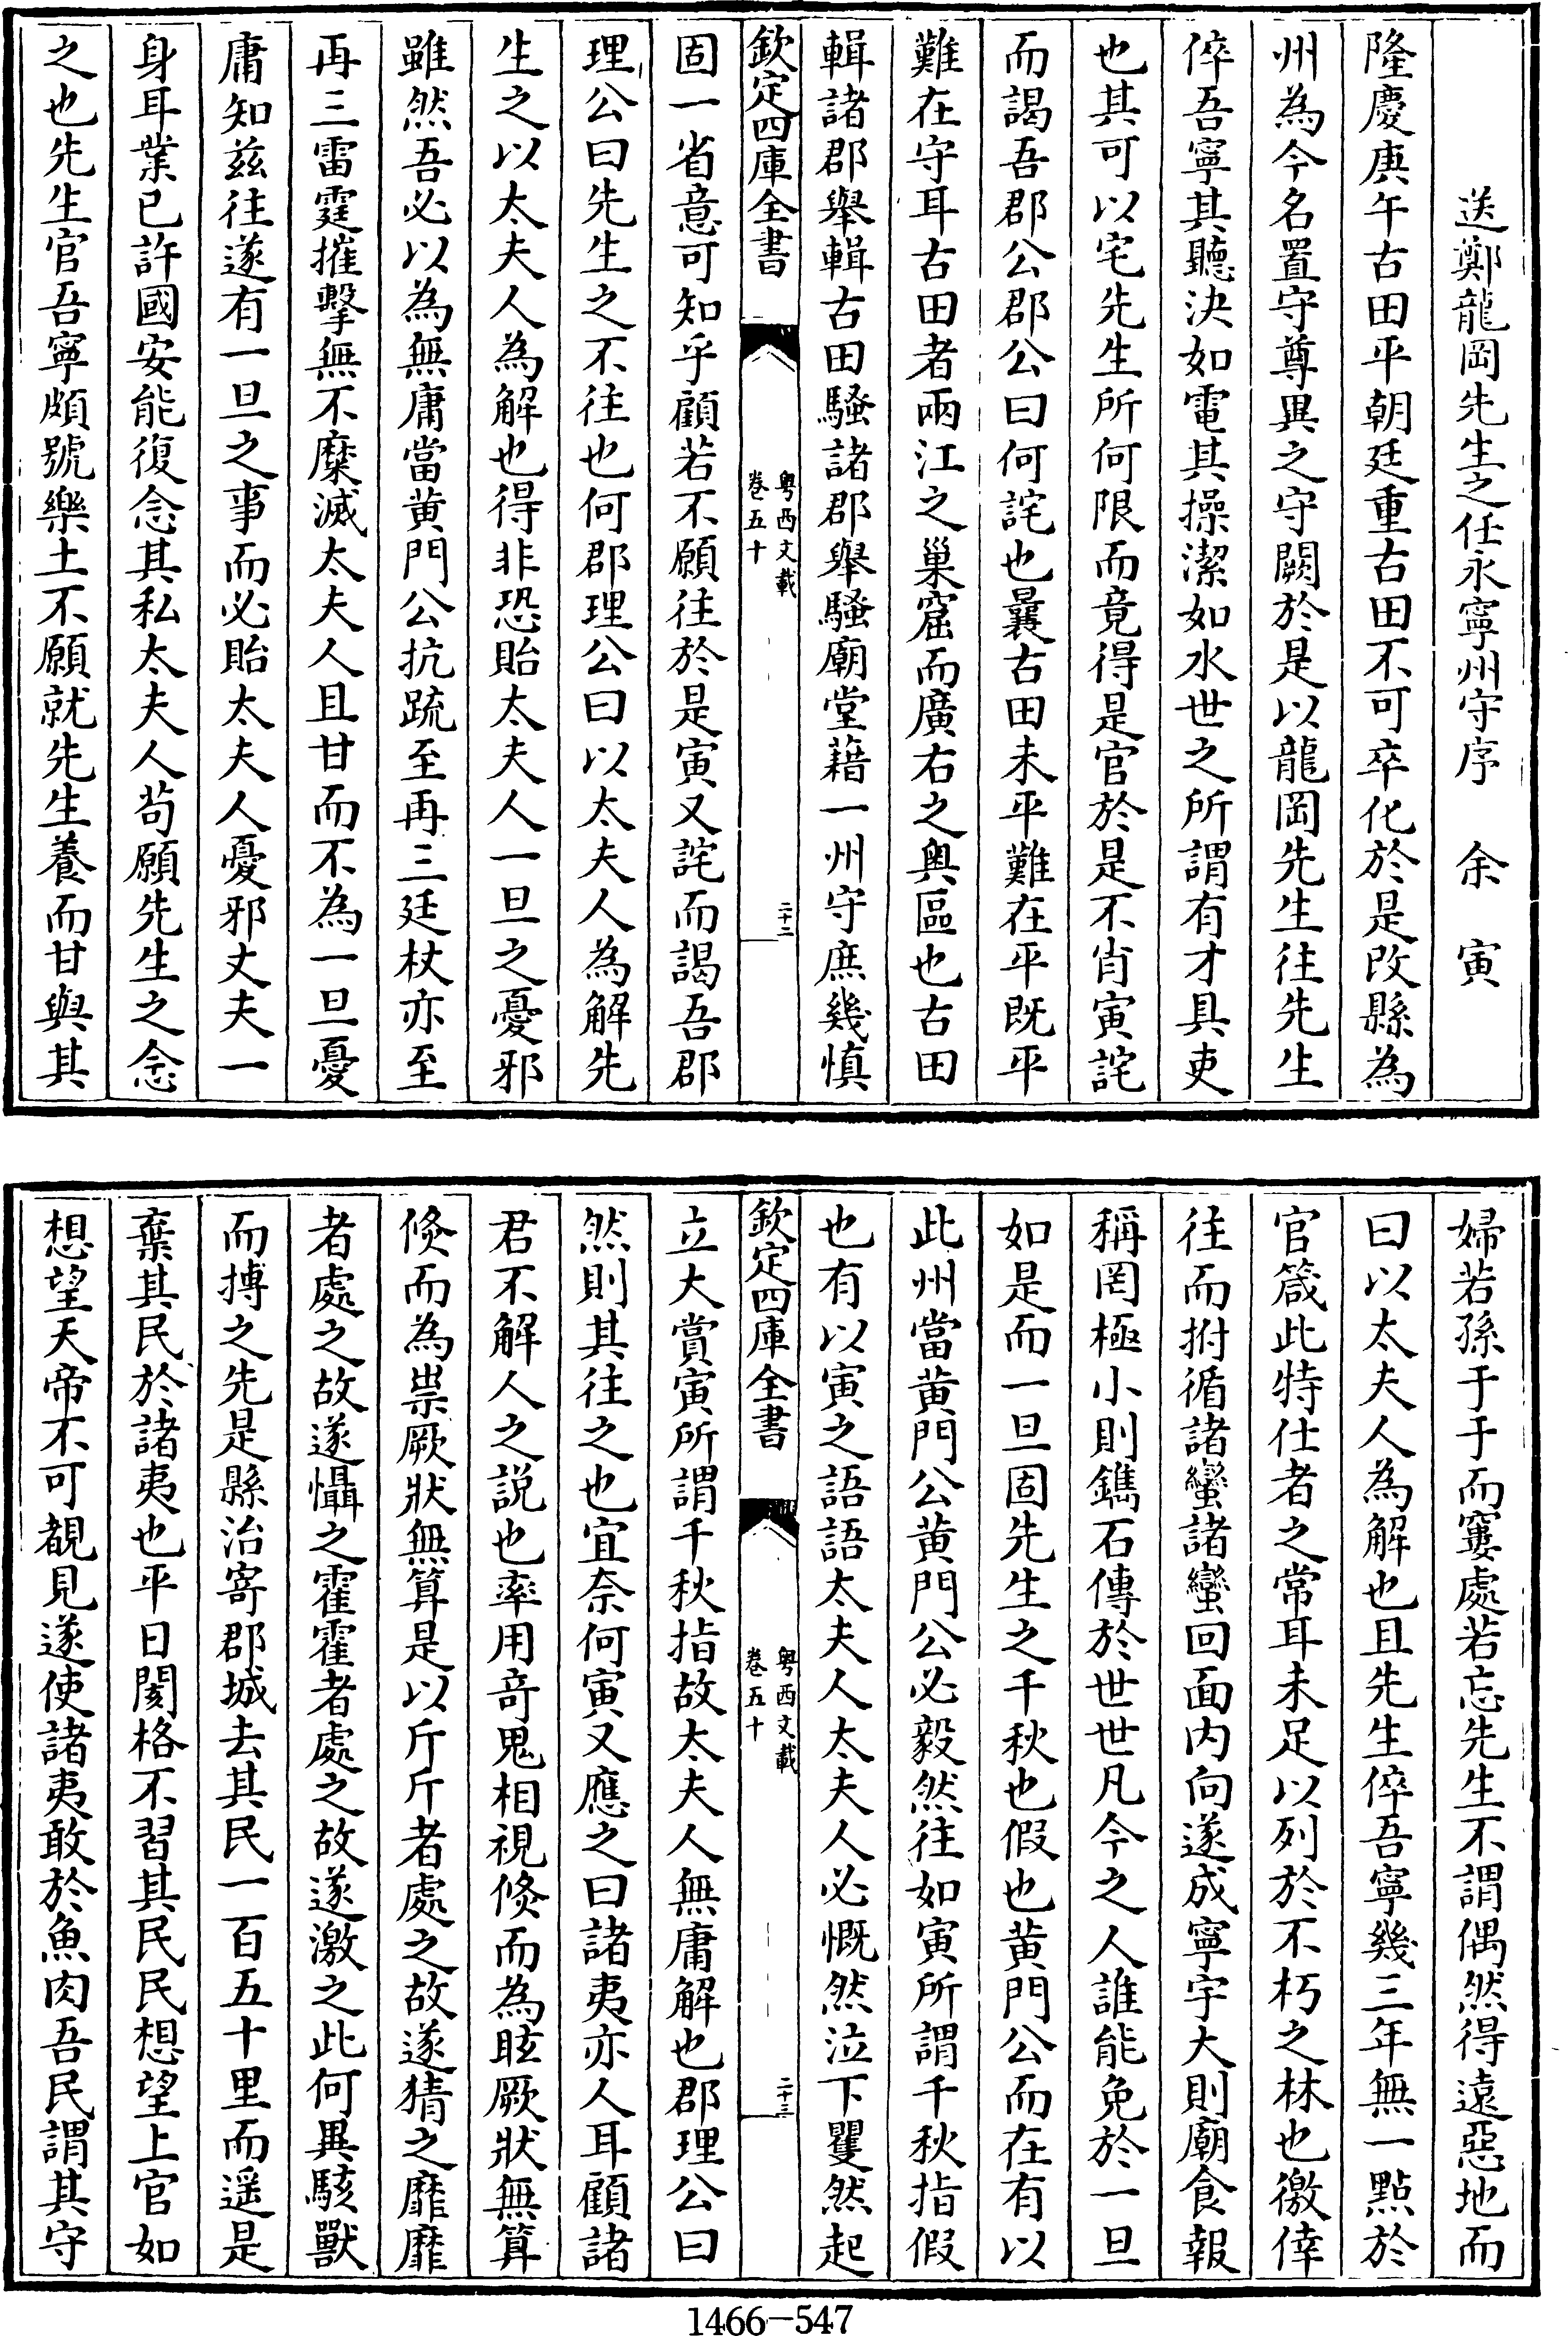 送鄭龍岡先生之任永寧州守序　余　寅
隆慶庚午古田平朝廷重古田不可卒化於是改縣為
州為今名置守尊異之守闕於是以龍岡先生往先生
倅吾寧其聽決如電其操潔如水世之所謂有才具吏
也其可以宅先生所何限而竟得是官於是不肖寅詫
而謁吾郡公郡公曰何詫也曩古田未平難在平既平
難在守耳古田者兩江之巢窟而廣右之奥區也古田
輯諸郡舉輯古田騷諸郡舉騷廟堂藉一州守庶幾慎
欽定四庫全書
粤西文載
卷五十
二十二
固一省意可知乎顧若不願往於是寅又詫而謁吾郡
理公曰先生之不往也何郡理公曰以太夫人為解先
生之以太夫人為解也得非恐貽太夫人一旦之憂邪
雖然吾必以為無庸當黄門公抗疏至再三廷杖亦至
再三雷霆摧擊無不糜滅太夫人且甘而不為一旦憂
庸知兹往遂有一旦之事而必貽太夫人憂邪丈夫一
身耳業已許國安能復念其私太夫人苟願先生之念
之也先生官吾寧頗號樂土不願就先生養而甘與其
婦若孫于于而窶處若忘先生不謂偶然得遠惡地而
曰以太夫人為解也且先生倅吾寧幾三年無一點於
官箴此特仕者之常耳未足以列於不朽之林也徼倖
往而拊循諸蠻諸蠻回面内向遂成寧宇大則廟食報
稱罔極小則鐫石傳於世世凡今之人誰能免於一旦
如是而一旦固先生之千秋也假也黄門公而在有以
此州當黄門公黄門公必毅然往如寅所謂千秋指假
也有以寅之語語太夫人太夫人必慨然泣下瞿然起
欽定四庫全書
粤西文載
卷五十
二十三
立大賞寅所謂千秋指故太夫人無庸解也郡理公曰
然則其往之也宜奈何寅又應之曰諸夷亦人耳顧諸
君不解人之説也率用竒鬼相視倐而為眩厥狀無算
倐而為祟厥狀無算是以斤斤者處之故遂猜之靡靡
者處之故遂懾之霍霍者處之故遂激之此何異駭獸
而搏之先是縣治寄郡城去其民一百五十里而遥是
棄其民於諸夷也平日閡格不習其民民想望上官如
想望天帝不可覩見遂使諸夷敢於魚肉吾民謂其守
1466—547